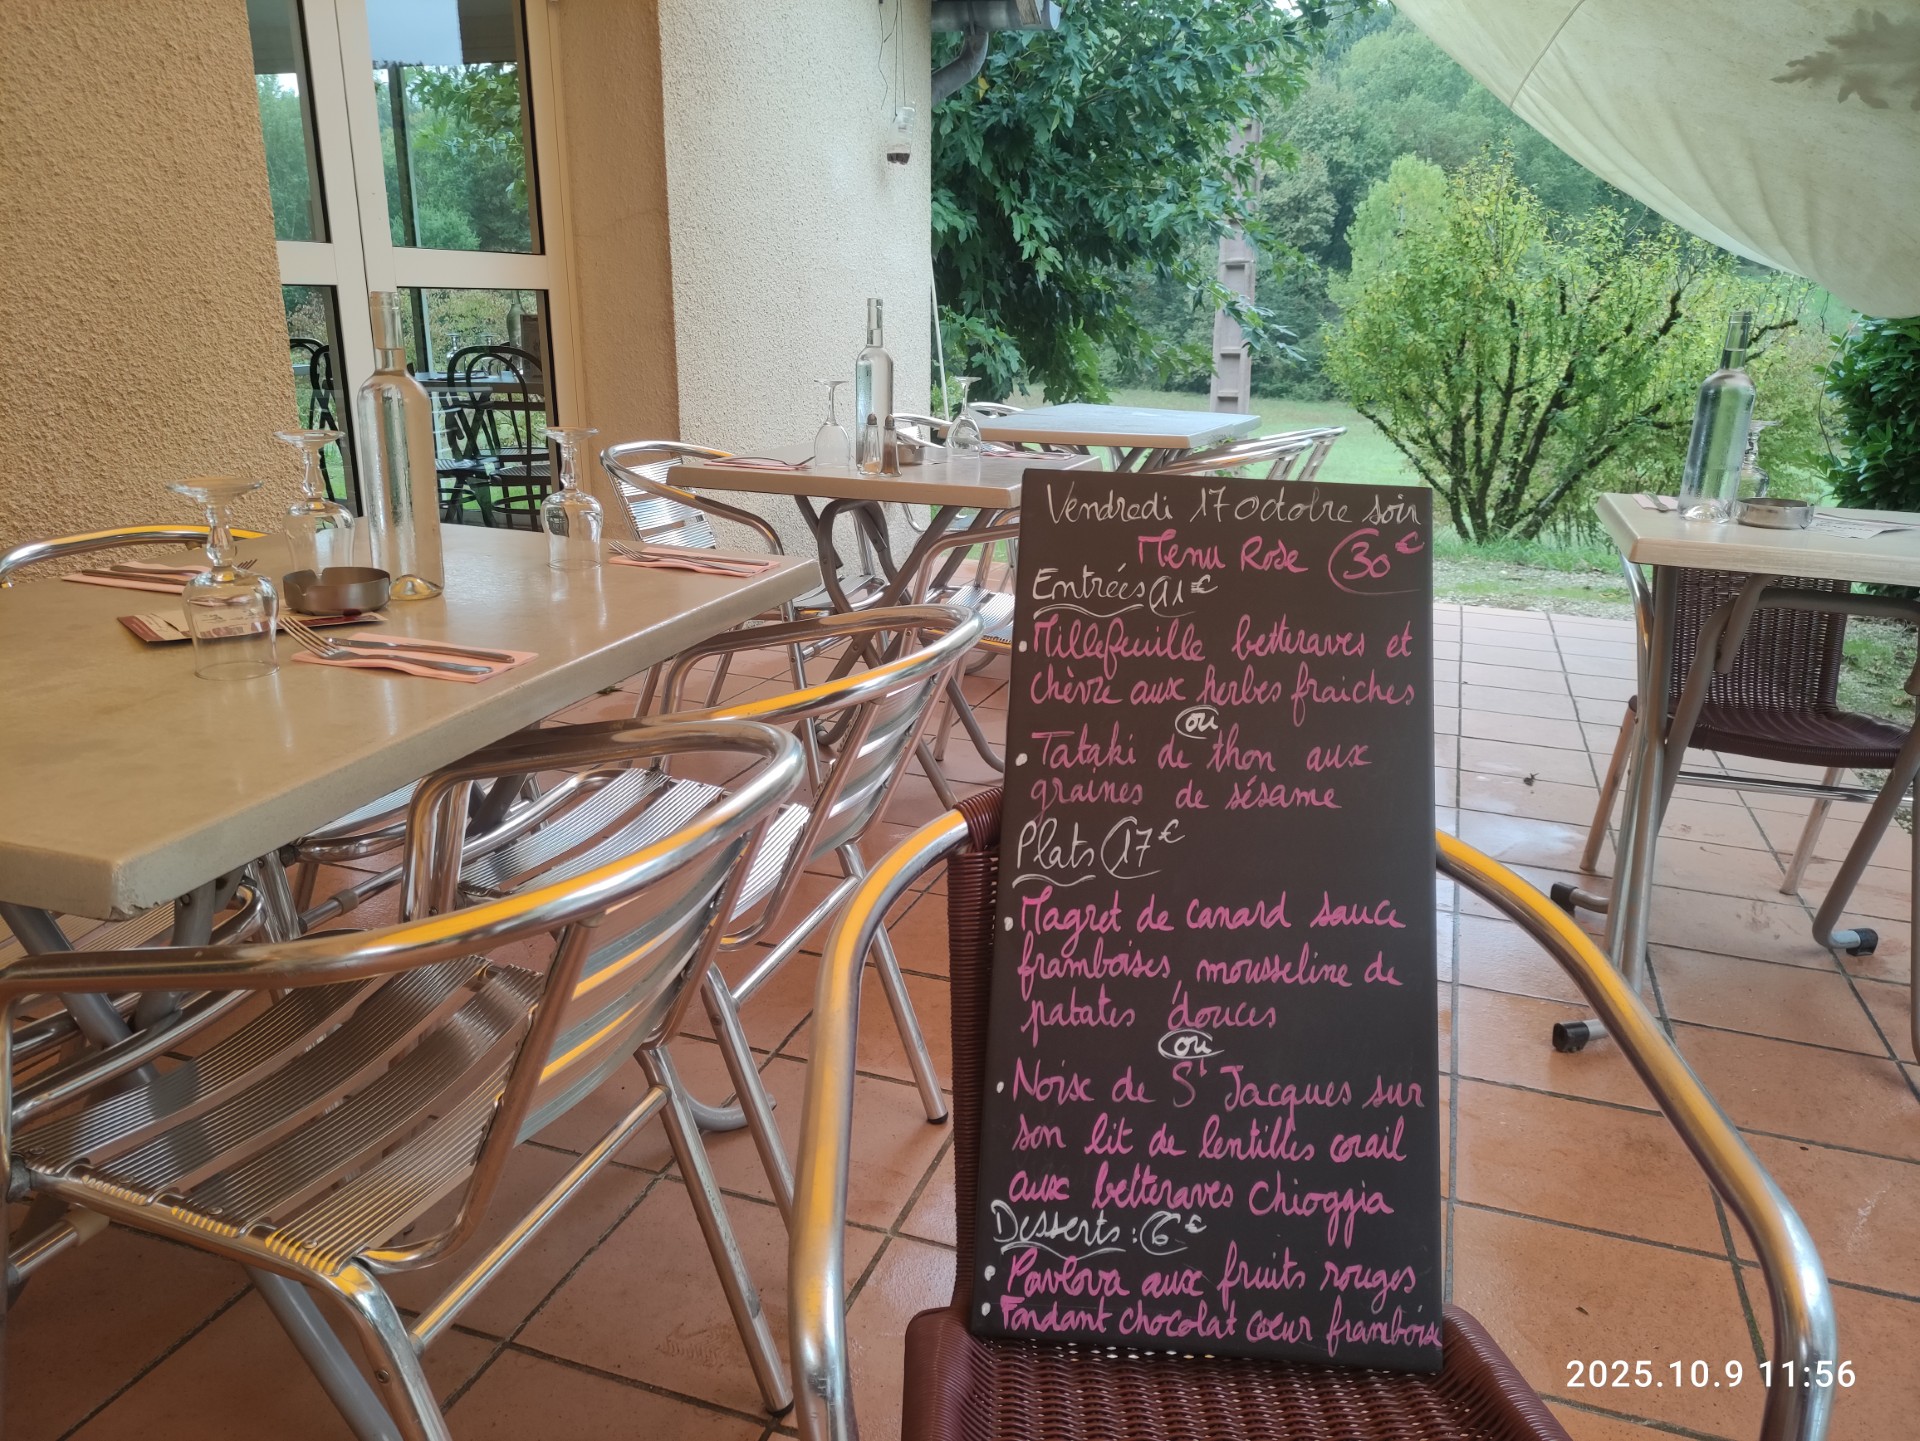 Vendredi 17 octobre soir
Menu Rose 30€
Entrées 11€
• Millefeuille betteraves et
chèvre aux herbes fraiches
ou
• Tataki de thon aux
graines de sésame
Plats 17€
• Magret de canard sauce
framboises, mousseline de
patates douces
ou
• Noix de St Jacques sur
son lit de lentilles corail
aux betteraves Chioggia
Desserts : 6€
• Pavlova aux fruits rouges
• Fondant chocolat cœur framboise
2025.10.9 11:56